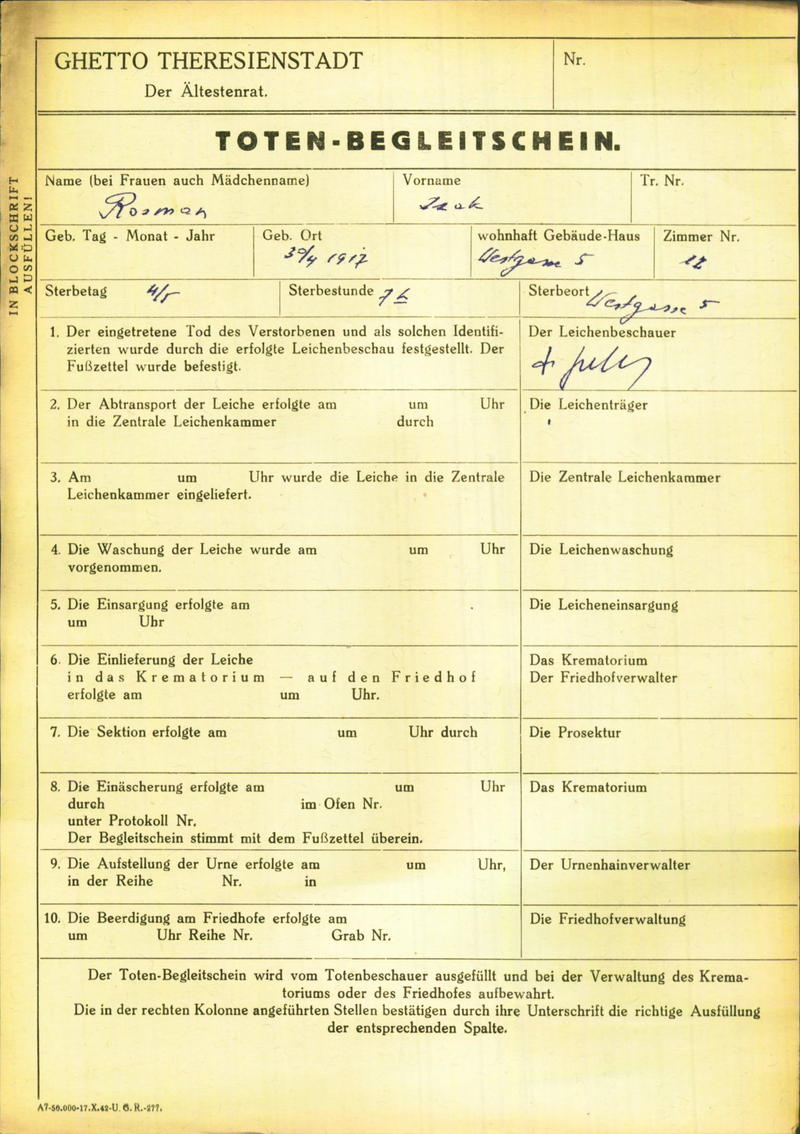 GHETTO THERESIENSTADT
Der Ältestenrat.
Nr.
TOTEN-BEGLEITSCHEIN.
IN BLOCKSCHRIFT
AUSFÜLLEN!
Name (bei Frauen auch Mädchenname)
Rosman
Vorname
Isak
Tr. Nr.
Geb. Tag - Monat - Jahr
Geb. Ort
30/4 1917
wohnhaft Gebäude-Haus
Westgasse 5
Zimmer Nr.
12
Sterbetag 4/5
Sterbestunde 7 h
Sterbeort Westgasse 5
1. Der eingetretene Tod des Verstorbenen und als solchen Identifi-
zierten wurde durch die erfolgte Leichenbeschau festgestellt. Der
Fußzettel wurde befestigt.
Der Leichenbeschauer
2. Der Abtransport der Leiche erfolgte am um Uhr
in die Zentrale Leichenkammer durch
Die Leichenträger
3. Am um Uhr wurde die Leiche in die Zentrale
Leichenkammer eingeliefert.
Die Zentrale Leichenkammer
4. Die Waschung der Leiche wurde am um Uhr
vorgenommen.
Die Leichenwaschung
5. Die Einsargung erfolgte am
um Uhr
Die Leicheneinsargung
6. Die Einlieferung der Leiche
in das Krematorium — auf den Friedhof
erfolgte am um Uhr.
Das Krematorium
Der Friedhofverwalter
7. Die Sektion erfolgte am um Uhr durch
Die Prosektur
8. Die Einäscherung erfolgte am um Uhr
durch im Ofen Nr.
unter Protokoll Nr.
Der Begleitschein stimmt mit dem Fußzettel überein.
Das Krematorium
9. Die Aufstellung der Urne erfolgte am um Uhr,
in der Reihe Nr. in
Der Urnenhainverwalter
10. Die Beerdigung am Friedhofe erfolgte am
um Uhr Reihe Nr. Grab Nr.
Die Friedhofverwaltung
Der Toten-Begleitschein wird vom Totenbeschauer ausgefüllt und bei der Verwaltung des Krema-
toriums oder des Friedhofes aufbewahrt.
Die in der rechten Kolonne angeführten Stellen bestätigen durch ihre Unterschrift die richtige Ausfüllung
der entsprechenden Spalte.
A7-50.000-17.X.42-U. G. R.-277.